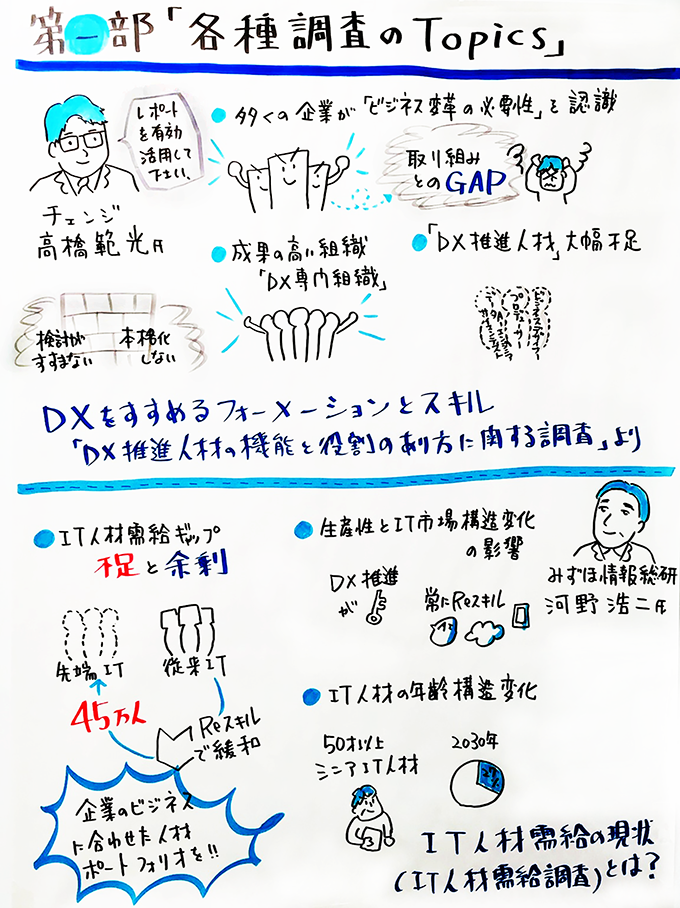 第一部「各種調査のTopics」
レポート
を有効
活用して
下さい。
チェンジ
高橋範光氏
多くの企業が「ビジネス変革の必要性」を認識
取り組み
とのGAP
成果の高い組織
「DX専門組織」
「DX推進人材」大幅不足
ビジネスデザイナー
プロデューサー
データサイエンティスト
検討が
すすまない
本格化
しない
DXをすすめるフォーメーションとスキル
「DX推進人材の機能と役割のあり方に関する調査」より
IT人材需給ギャップ
不足と余剰
先端IT
従来IT
45万人
Reスキル
で緩和
企業のビジネス
に合わせた人材
ポートフォリオを!!
生産性とIT市場構造変化
の影響
DX推進
が
常にReスキル
AI
みずほ情報総研
河野浩二氏
IT人材の年齢構造変化
50才以上
シニアIT人材
2030年
27%
IT人材需給の現状
(IT人材需給調査)とは?